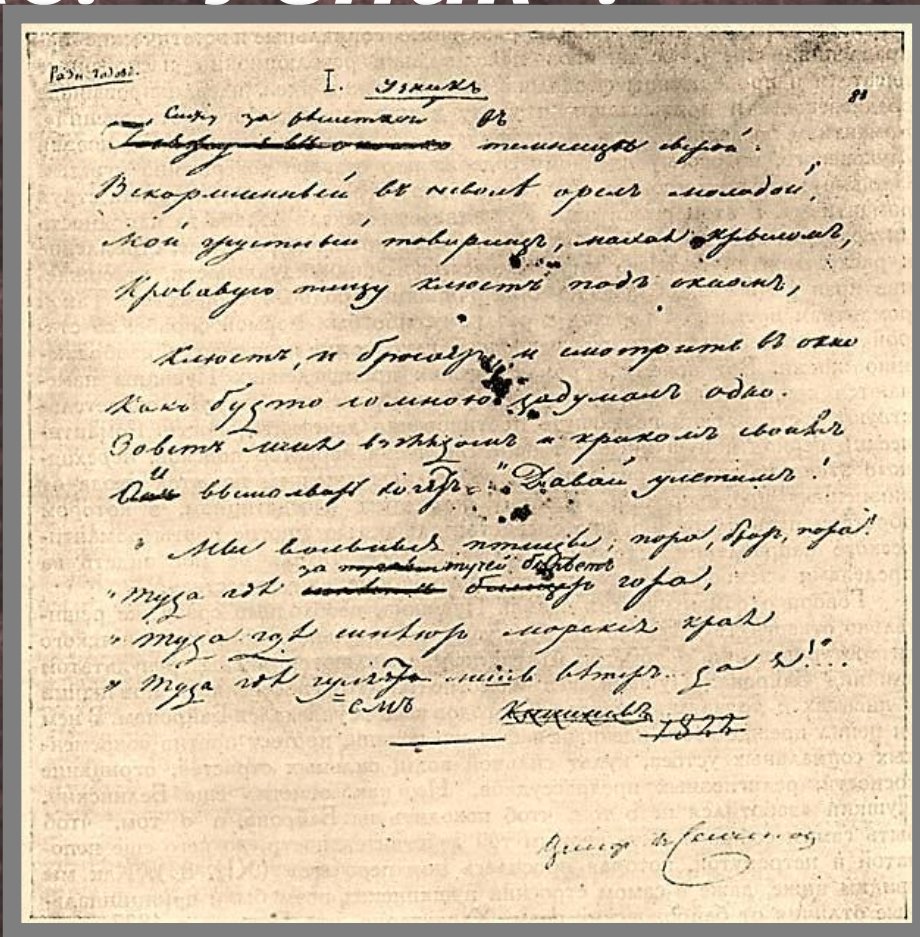 I. Узникъ
Сижу за рѣшеткой въ
темницѣ сырой.
Вскормленный въ неволѣ орелъ молодой,
Мой грустный товарищъ, махая крыломъ,
Кровавую пищу клюетъ подъ окномъ,
Клюетъ, и бросаетъ, и смотритъ въ окно
Какъ будто со мною задумалъ одно.
Зоветъ меня взглядомъ и крикомъ своимъ
И вымолвить хочетъ: "Давай улетимъ!
" Мы вольныя птицы; пора, братъ, пора!
за тучей бѣлѣетъ
" Туда гдѣ гора,
" Туда гдѣ синѣютъ морскіе края
" Туда гдѣ гуляемъ лишь вѣтеръ да я!"...
емъ
Кишиневъ
1822